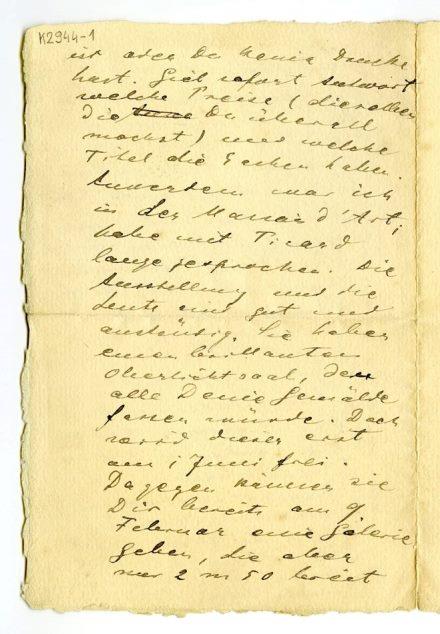 K2944-1
ist oder Du keine Drucke
hast. Gieb sofort Antwort
welche Preise (dieselben
die Du überall
machst) und welche
Titel die Sachen haben.
Ausserdem war ich
in der Maison d'Art,
habe mit Picard
lange gesprochen. Die
Ausstellung und die
Leute sind gut und
anständig. Sie haben
einen brillanten
Oberlichtsaal, der
alle Deine Gemälde
fassen würde. Doch
wird dieser erst
am 1 Juni frei.
Dagegen können sie
Dir bereits am 9
Februar eine Galerie
geben, die aber
nur 2 m 50 breit